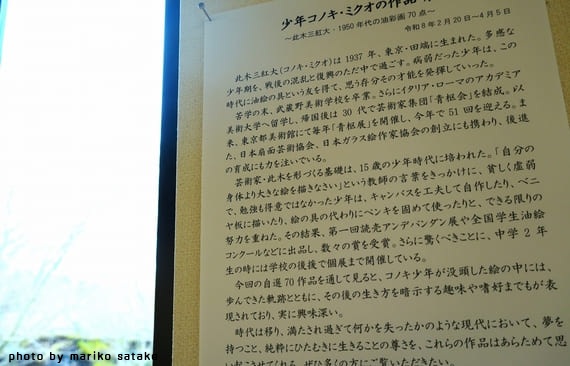 少年コノキ・ミクオの作品
～此木三紅大・1950年代の油彩画70点～
令和8年2月20日～4月5日
此木三紅大(コノキ・ミクオ)は1937年、東京・田端に生まれた。多感な
少年期を、戦後の混乱と復興のただ中で過ごす。病弱だった少年は、この
時代に油絵の具という友を得て、思う存分その才能を発揮していった。
苦学の末、武蔵野美術学校を卒業。さらにイタリア・ローマのアカデミア
美術大学へ留学し、帰国後は30代で芸術家集団「青枢会」を結成。以
来、東京都美術館にて毎年「青枢展」を開催し、今年で51回を迎える。ま
た、日本扇面芸術協会、日本ガラス絵作家協会の創立にも携わり、後進
の育成にも力を注いでいる。
芸術家・此木を形づくる基礎は、15歳の少年時代に培われた。「自分の
身体より大きな絵を描きなさい」という教師の言葉をきっかけに、貧しく虚弱
で、勉強も得意ではなかった少年は、キャンバスを工夫して自作したり、ベニ
ヤ板に描いたり、絵の具の代わりにペンキを固めて使ったりと、できる限りの
努力を重ねた。その結果、第一回読売アンデパンダン展や全国学生油絵
コンクールなどに出品し、数々の賞を受賞。さらに驚くべきことに、中学2年
生の時には学校の後援で個展まで開催している。
今回の自選70作品を通して見ると、コノキ少年が没頭した絵の中には、
歩んできた軌跡とともに、その後の生き方を暗示する趣味や嗜好までもが表
現されており、実に興味深い。
時代は移り、満たされ過ぎて何かを失ったかのような現代において、夢を
持つこと、純粋にひたむきに生きることの尊さを、これらの作品はあらためて思
い起こさせてくれる。ぜひ多くの方にご覧いただきたい。
photo by mariko satake